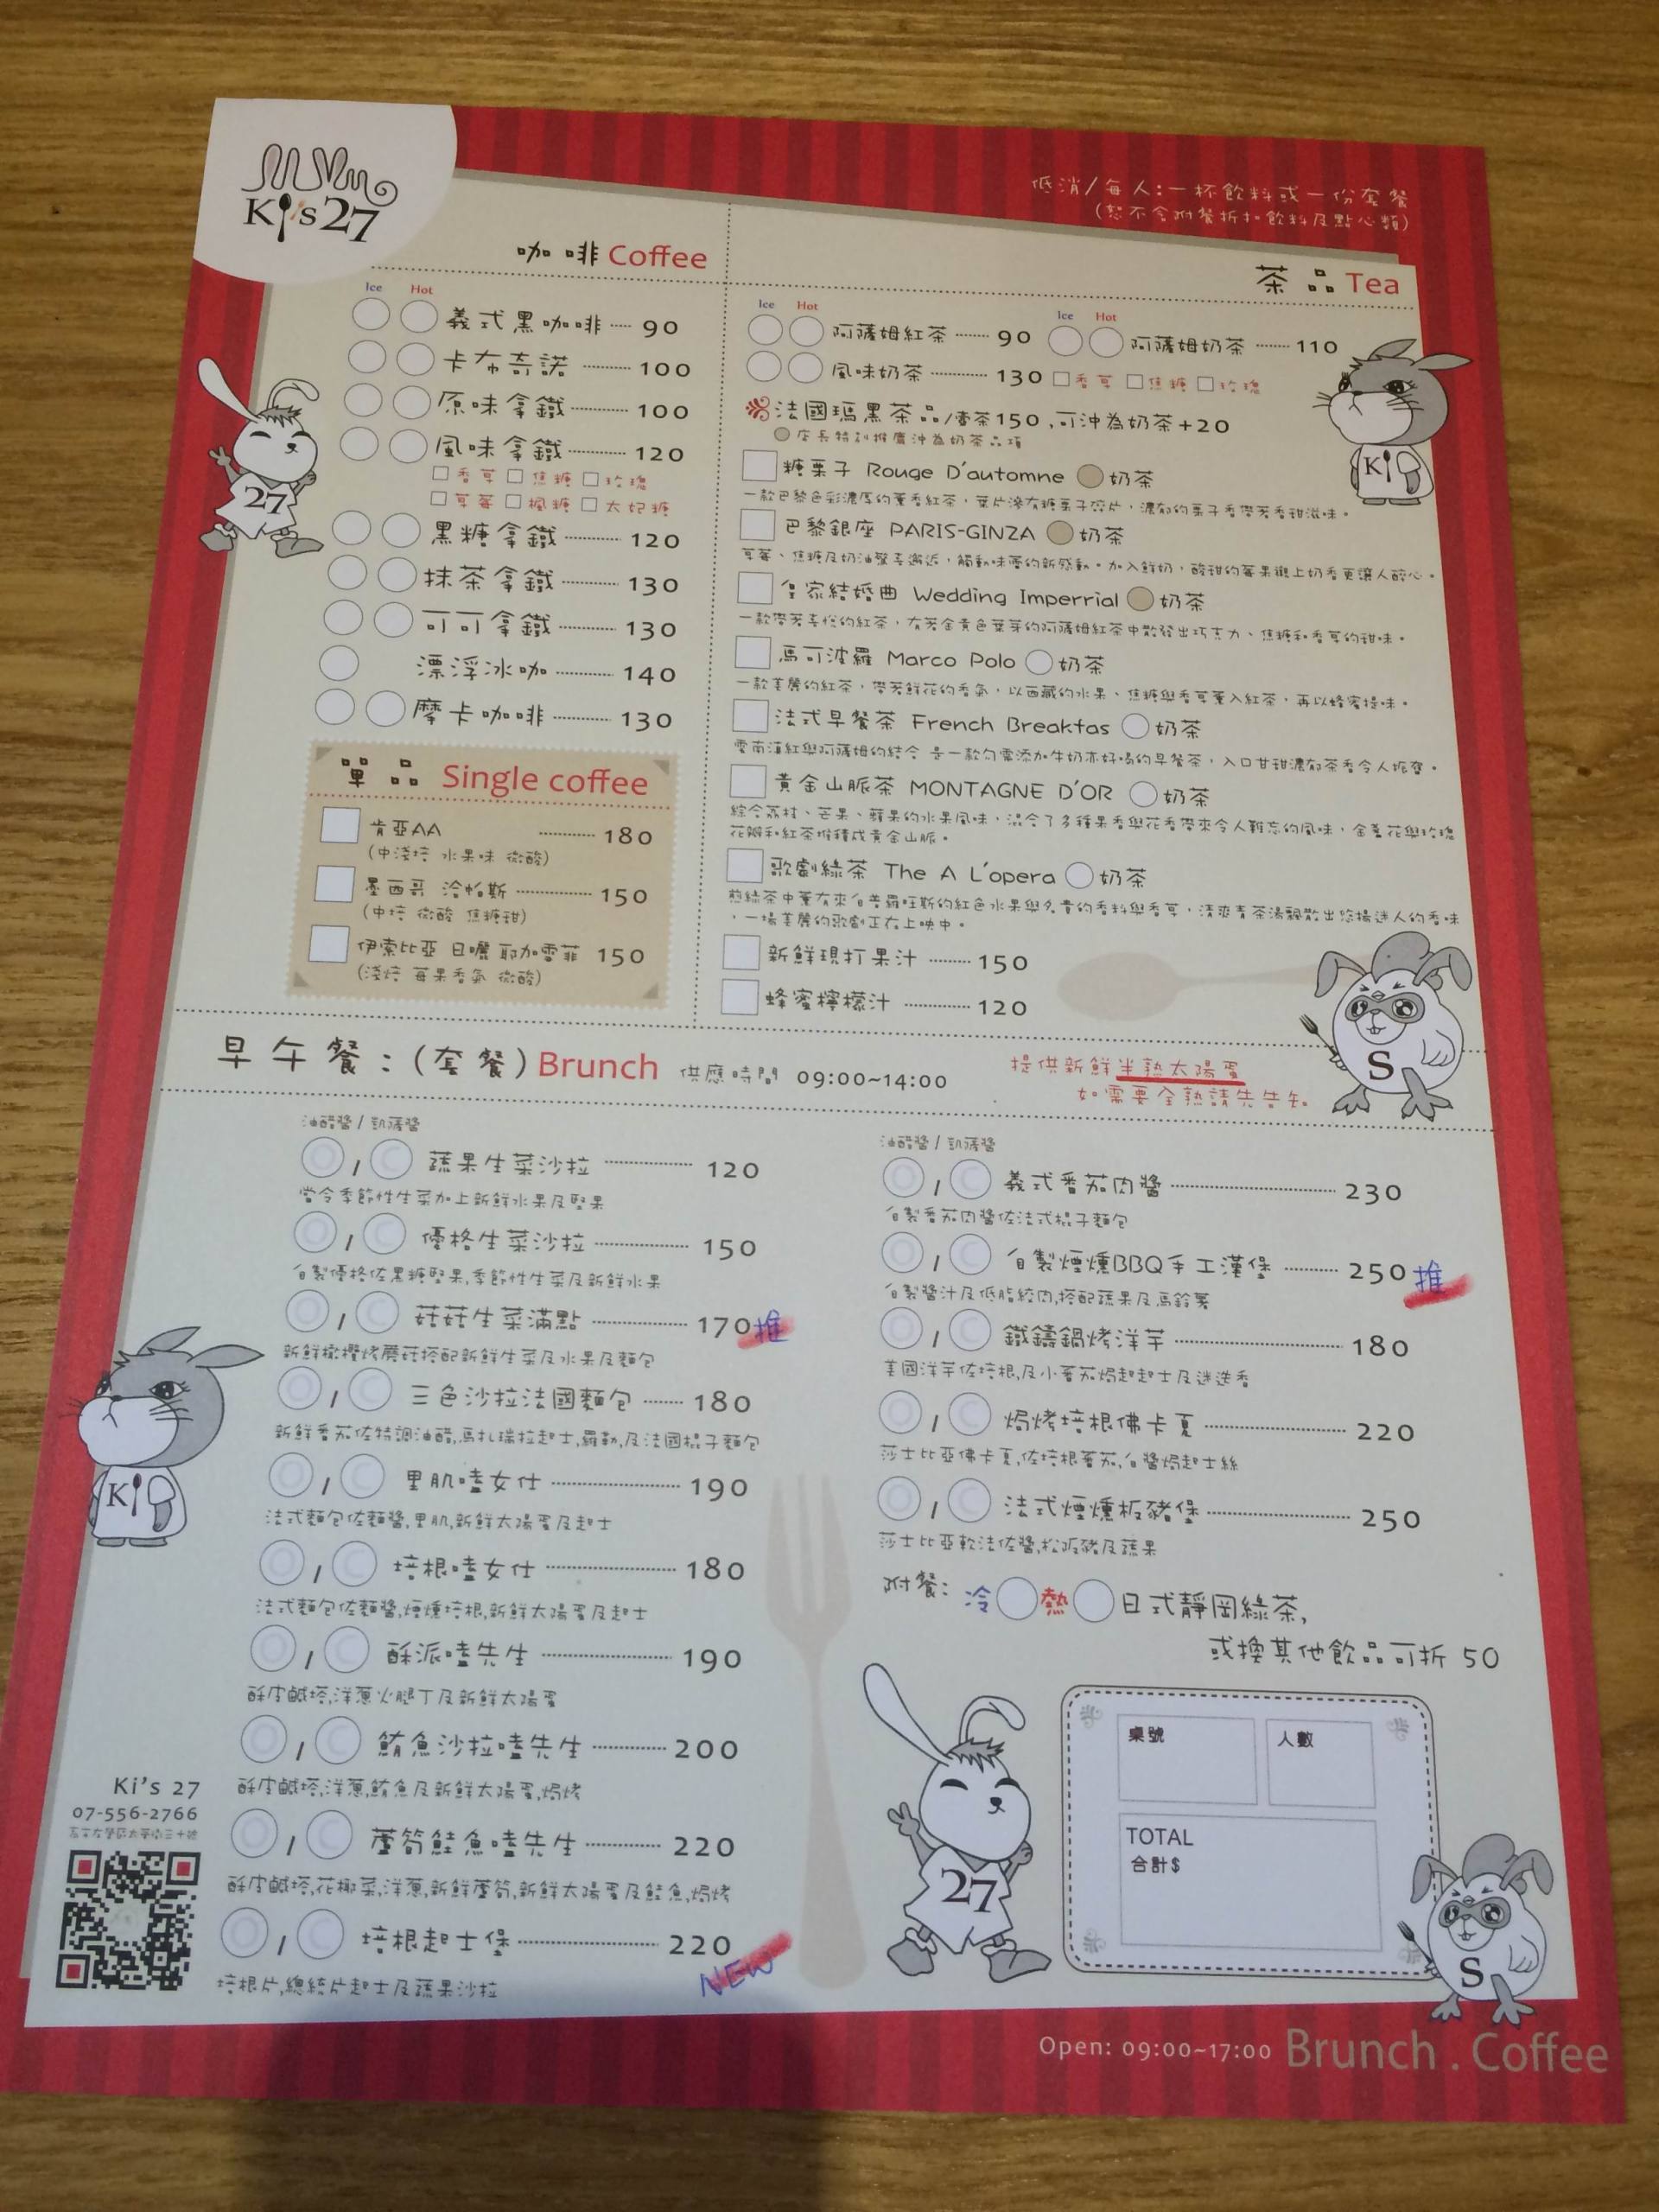 Ki's27
低消/每人:一杯飲料或一份套餐
(恕不含附餐折扣飲料及點心類)
咖啡 Coffee
Ice Hot
義式黑咖啡 ····· 90
卡布奇諾 ········· 100
原味拿鐵 ·········· 100
風味拿鐵 ·········· 120
□香草 □焦糖 □玫瑰
□草莓 □楓糖 □太妃糖
黑糖拿鐵 ·········· 120
抹茶拿鐵 ·········· 130
可可拿鐵 ·········· 130
漂浮冰咖 ·········· 140
摩卡咖啡 ·········· 130
單品 Single coffee
肯亞AA ·········· 180
(中淺焙 水果味 微酸)
墨西哥 洽帕斯 ·········· 150
(中焙 微酸 焦糖甜)
伊索比亞 日曬 耶加雪菲 150
(淺焙 莓果香氣 微酸)
茶品 Tea
Ice Hot
Ice Hot
阿薩姆紅茶 ······ 90
阿薩姆奶茶 ······ 110
風味奶茶 ·········· 130 □香草 □焦糖 □玫瑰
法國瑪黑茶品/壺茶150,可沖為奶茶+20
店長特別推薦沖為奶茶品項
糖栗子 Rouge D'automne 奶茶
一款巴黎色彩濃厚的薰香紅茶,葉片滲有糖栗子碎片,濃郁的栗子香帶著香甜滋味。
巴黎銀座 PARIS-GINZA 奶茶
草莓、焦糖及奶油驚喜邂逅,觸動味蕾的新感動。加入鮮奶,酸甜的莓果襯上奶香更讓人醉心。
皇家結婚曲 Wedding Imperrial 奶茶
一款帶著喜悅的紅茶,有著金黃色葉芽的阿薩姆紅茶中散發出巧克力、焦糖和香草的甜味。
馬可波羅 Marco Polo 奶茶
一款美麗的紅茶,帶著鮮花的香氣,以西藏的水果、焦糖與香草薰入紅茶,再以蜂蜜提味。
法式早餐茶 French Breakfas 奶茶
雲南滇紅與阿薩姆的結合 是一款勿需添加牛奶亦好喝的早餐茶,入口甘甜濃郁茶香令人振奮。
黃金山脈茶 MONTAGNE D'OR 奶茶
綜合荔枝、芒果、蘋果的水果風味,混合了多種果香與花香帶來令人難忘的風味,金盞花與玫瑰
花瓣和紅茶堆積成黃金山脈。
歌劇綠茶 The A L'opera 奶茶
煎綠茶中薰有來自普羅旺斯的紅色水果與名貴的香料與香草,清爽青茶湯飄散出悠揚迷人的香味
,一場美麗的歌劇正在上映中。
新鮮現打果汁 ········ 150
蜂蜜檸檬汁 ·········· 120
早午餐:(套餐) Brunch 供應時間 09:00~14:00
提供新鮮半熟太陽蛋
如需要全熟請先告知
油醋醬/凱薩醬
/ 蔬果生菜沙拉 ·········· 120
當令季節性生菜加上新鮮水果及堅果
/ 優格生菜沙拉 ·········· 150
自製優格佐黑糖堅果,季節性生菜及新鮮水果
/ 菇菇生菜滿點 ·········· 170 推
新鮮橄欖烤蘑菇搭配新鮮生菜及水果及麵包
/ 三色沙拉法國麵包 ······ 180
新鮮番茄佐特調油醋,馬扎瑞拉起士,羅勒,及法國棍子麵包
/ 里肌嗑女仕 ·········· 190
法式麵包佐麵醬,里肌,新鮮太陽蛋及起士
/ 培根嗑女仕 ·········· 180
法式麵包佐麵醬,煙燻培根,新鮮太陽蛋及起士
/ 酥派嗑先生 ·········· 190
酥皮鹹塔,洋蔥火腿丁及新鮮太陽蛋
/ 鮪魚沙拉嗑先生 ·········· 200
酥皮鹹塔,洋蔥,鮪魚及新鮮太陽蛋,焗烤
/ 蘆筍鮭魚嗑先生 ·········· 220
酥皮鹹塔,花椰菜,洋蔥,新鮮蘆筍,新鮮太陽蛋及鮭魚,焗烤
/ 培根起士堡 ·········· 220
NEW
培根片,總統片起士及蔬果沙拉
油醋醬/凱薩醬
/ 義式番茄肉醬 ·········· 230
自製番茄肉醬佐法式棍子麵包
/ 自製煙燻BBQ手工漢堡 ········ 250 推
自製醬汁及低脂絞肉,搭配蔬果及馬鈴薯
/ 鐵鑄鍋烤洋芋 ·········· 180
美國洋芋佐培根,及小蕃茄焗起起士及迷迭香
/ 焗烤培根佛卡夏 ·········· 220
莎士比亞佛卡夏,佐培根蕃茄,白醬焗起士絲
/ 法式煙燻板豬堡 ·········· 250
莎士比亞軟法佐醬,松阪豬及蔬果
附餐: 冷 熱 日式靜岡綠茶,
或換其他飲品可折 50
桌號 人數
TOTAL
合計$
Ki's 27
07-556-2766
27
K
S
K
27
S
Open: 09:00~17:00 Brunch . Coffee